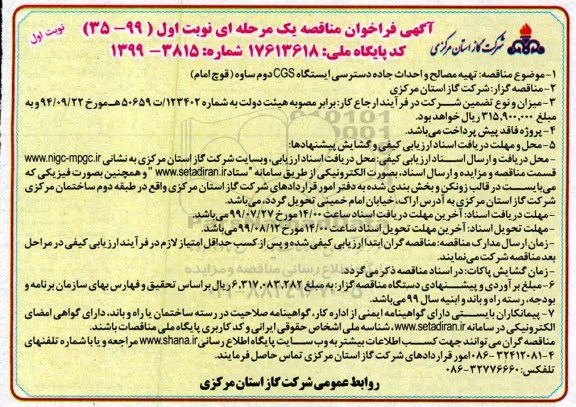 آگهی فراخوان مناقصه یک مرحله ای نوبت اول ( ۹۹- ۳۵)
نوبت اول
شرکت گاز استان مرکزی
کد پایگاه ملی: ۱۷۶۱۳۶۱۸ شماره: ۳۸۱۵- ۱۳۹۹
۱-موضوع مناقصه: تهیه مصالح و احداث جاده دسترسی ایستگاه CGS دوم ساوه (قوچ امام)
۲-مناقصه گزار: شرکت گاز استان مرکزی
۳-میزان و نوع تضمین شرکت در فرآیند ارجاع کار: برابر مصوبه هیئت دولت به شماره ۱۲۳۴۰۲/ت ۵۰۶۵۹ هـ مورخ ۹۴/۰۹/۲۲ و به
مبلغ ۳۱۵,۹۰۰,۰۰۰ ریال خواهد بود.
۴- پروژه فاقد پیش پرداخت می‌باشد.
۵- محل و مهلت دریافت اسناد ارزیابی کیفی و گشایش پیشنهادها:
-محل دریافت و ارسال اسناد ارزیابی کیفی: محل دریافت اسناد ارزیابی، وبسایت شرکت گاز استان مرکزی به نشانی www.nigc-mpgc.ir
قسمت مناقصه و مزایده و ارسال اسناد، بصورت الکترونیکی از طریق سامانه "ستاد www.setadiran.ir" و همچنین بصورت فیزیکی که
می‌بایست در قالب زونکن و بخش بندی شده به دفتر امور قراردادهای شرکت گاز استان مرکزی واقع در طبقه دوم ساختمان مرکزی
شرکت گاز استان مرکزی به آدرس اراک، خیابان امام خمینی تحویل گردد، می‌باشد.
-مهلت دریافت اسناد: آخرین مهلت دریافت اسناد ساعت ۱۴/۰۰ مورخ ۹۹/۰۷/۲۷ می‌باشد.
-مهلت تحویل اسناد: آخرین مهلت تحویل اسناد ساعت ۱۴/۰۰ مورخ ۹۹/۰۸/۱۲ می‌باشد.
-زمان ارسال مدارک مناقصه: مناقصه گران ابتدا ارزیابی کیفی شده و پس از کسب حداقل امتیاز لازم در فرآیند ارزیابی کیفی در مراحل
بعد مناقصه شرکت می‌نمایند.
-زمان گشایش پاکات: در اسناد مناقصه ذکر می‌گردد.
۶-مبلغ برآوردی و پیشنهادی دستگاه مناقصه گزار: به مبلغ ۶,۳۱۷,۰۸۳,۲۸۲ ریال بر اساس تحقیق و فهارس بهای سازمان برنامه و
بودجه، رسته راه و باند و ابنیه سال ۹۹ می‌باشد.
۷- پیمانکاران بایستی دارای گواهینامه ایمنی از اداره کار، گواهینامه صلاحیت در رسته ساختمان یا راه و باند، دارای گواهی امضای
الکترونیکی در سامانه www.setadiran.ir، شناسه ملی اشخاص حقوقی ایرانی و کد کاربری پایگاه ملی مناقصات باشند.
مناقصه گران می توانند جهت کسب اطلاعات بیشتر به وب سایت پایگاه اطلاع رسانی www.shana.ir مراجعه و یا با شماره تلفنهای
۴-۳۲۴۱۲۰۸۱-۰۸۶ امور قراردادهای شرکت گاز استان مرکزی تماس حاصل فرمایند.
تلفکس: ۳۲۷۷۶۶۶۰-۰۸۶
روابط عمومی شرکت گاز استان مرکزی